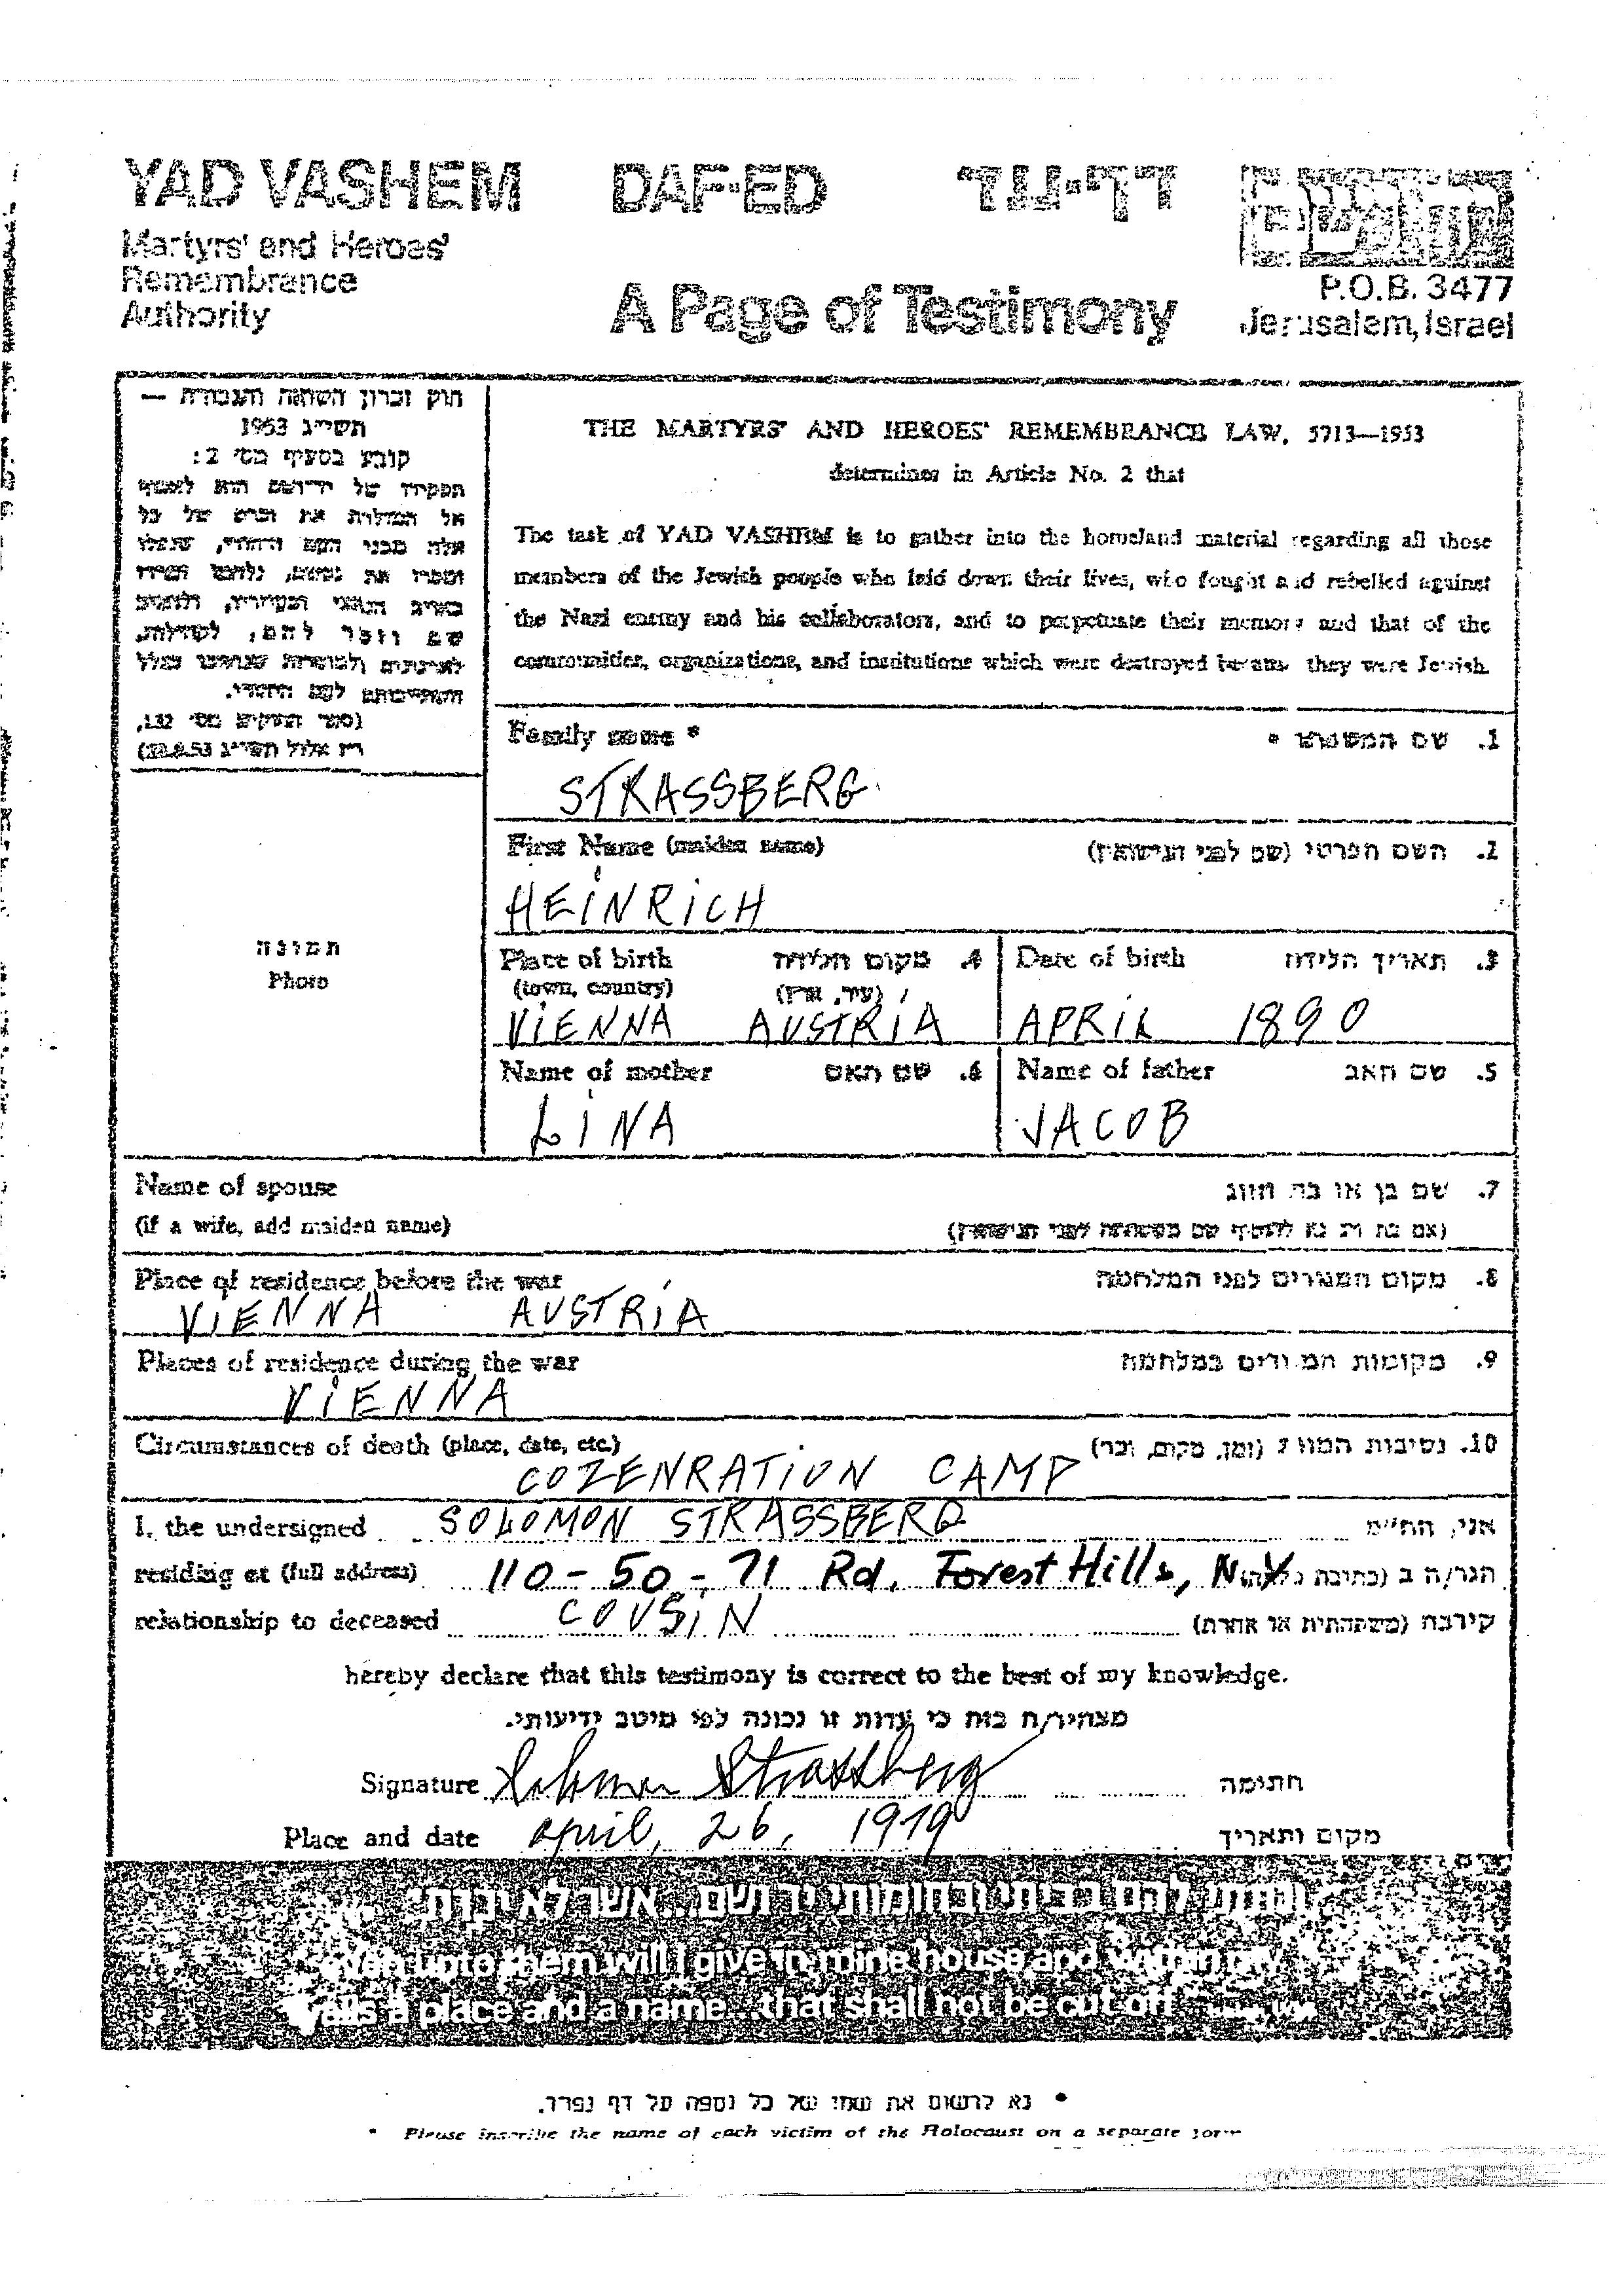 YAD VASHEM DAF-ED דף-עד
Martyrs' and Heroes'
Remembrance
Authority
A Page of Testimony
P.O.B. 3477
Jerusalem, Israel
חוק זכרון השואה והגבורה —
תשי"ג 1953
קובע בסעיף מס' 2:
תפקידו של יד-ושם הוא לאסוף
אל המולדת את זכרם של כל
אלה מבני העם היהודי, שנפלו
ומסרו את נפשם, נלחמו ומרדו
באויב הנאצי ובעוזריו, ולהציב
שם וזכר להם, לקהילות,
לארגונים ולמוסדות שנחרבו בגלל
השתייכותם לעם היהודי.
(ספר החוקים מס' 132,
י"ז אלול תשי"ג 28.8.53)
THE MARTYRS' AND HEROES' REMEMBRANCE LAW, 5713—1953
determines in Article No. 2 that
The task of YAD VASHEM is to gather into the homeland material regarding all those
members of the Jewish people who laid down their lives, who fought and rebelled against
the Nazi enemy and his collaborators, and to perpetuate their memory and that of the
communities, organizations, and institutions which were destroyed because they were Jewish.
Family name * 1. שם המשפחה *
STRASSBERG
First Name (maiden name) 2. השם הפרטי (שם לפני הנישואין)
HEINRICH
תמונה
Photo
Place of birth 4. מקום הלידה
(town, country) (עיר, ארץ)
VIENNA AUSTRIA
Date of birth 3. תאריך הלידה
APRIL 1890
Name of mother 6. שם האם
LINA
Name of father 5. שם האב
JACOB
Name of spouse 7. שם בן או בת הזוג
(if a wife, add maiden name) (אם בת זוג נא להוסיף שם משפחתה לפני הנישואין)
Place of residence before the war 8. מקום המגורים לפני המלחמה
VIENNA AUSTRIA
Places of residence during the war 9. מקומות המגורים במלחמה
VIENNA
Circumstances of death (place, date, etc.) 10. נסיבות המוות (זמן, מקום, וכו')
COZENRATION CAMP
I, the undersigned SOLOMON STRASSBERG אני, הח"מ
residing at (full address) 110-50-71 Rd. Forest Hills, N.Y. הגר/ה ב (כתובת
relationship to deceased COUSIN קירבה (משפחתית או אחרת)
hereby declare that this testimony is correct to the best of my knowledge.
מצהיר/ה בזה כי עדות זו נכונה לפי מיטב ידיעותי.
Signature Solomon Strassberg חתימה
Place and date april, 26, 1979 מקום ותאריך
ונתתי להם בביתי ובחומותי יד ושם... אשר לא יכרת
even unto them will I give in mine house and within my
walls a place and a name... that shall not be cut off
* נא לרשום את שמו של כל נספה על דף נפרד.
* Please inscribe the name of each victim of the Holocaust on a separate form